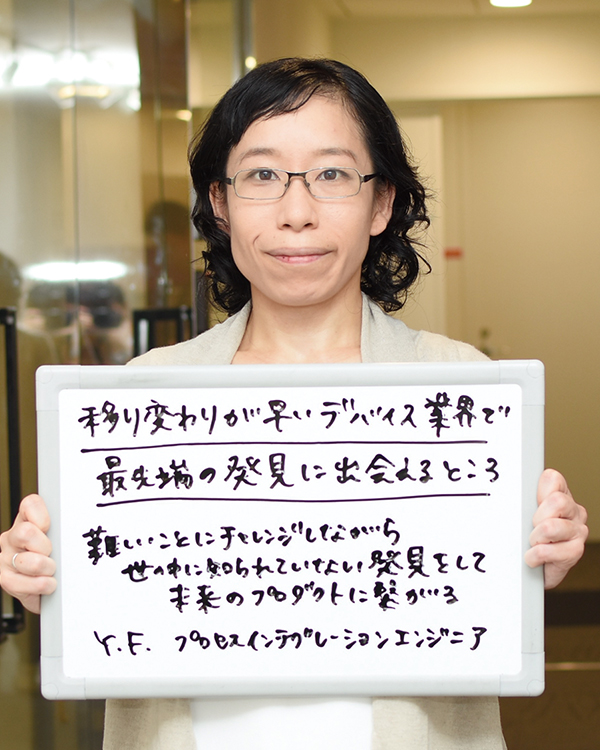 移り変わりが早いデバイス業界で
最先端の発見に出会えるところ
難しいことにチャレンジしながら
世の中に知られていない発見をして
未来のプロダクトに繋がる
Y.F. プロセスインテグレーションエンジニア